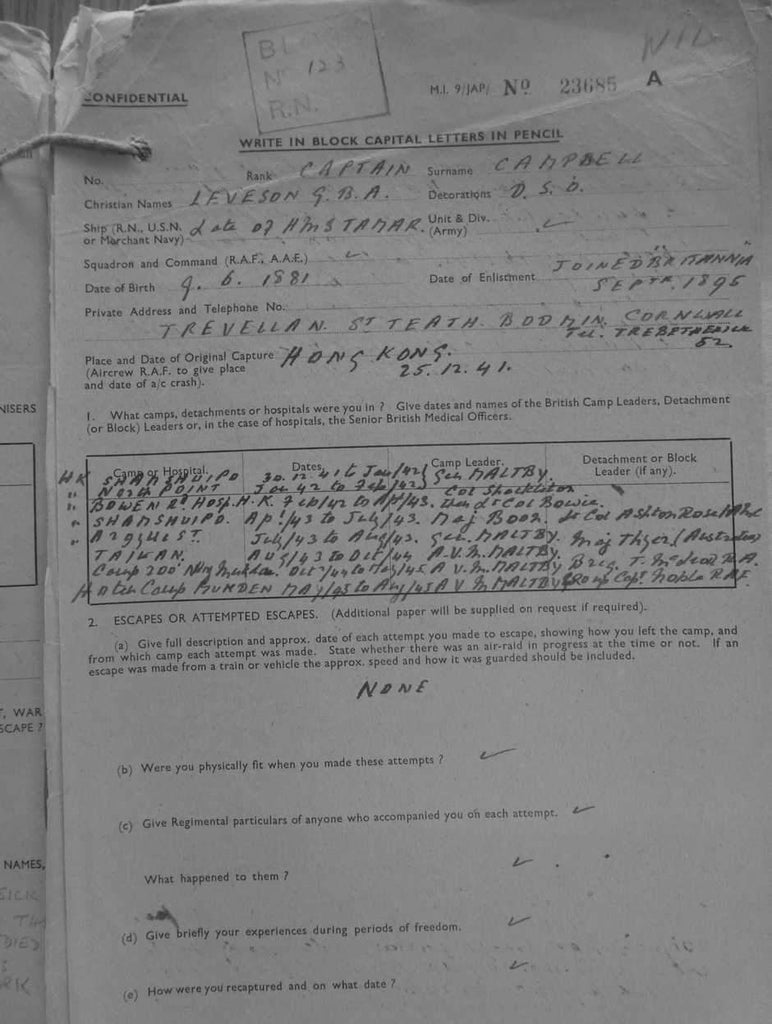 CONFIDENTIAL
No 123
R.N.
M.I. 9/JAP/ No 23685 A
WRITE IN BLOCK CAPITAL LETTERS IN PENCIL
No. Rank CAPTAIN Surname CAMPBELL
Christian Names LEVESON G.B.A. Decorations D.S.O.
Ship (R.N., U.S.N. or Merchant Navy) Late of HMS TAMAR. Unit & Div. (Army)
Squadron and Command (R.A.F., A.A.F.)
Date of Birth 9. 6. 1881 Date of Enlistment JOINED BRITANNIA
SEPTR. 1895
Private Address and Telephone No.
TREVELLAN. ST TEATH. BODMIN. CORNWALL
Tel. TREBETHERICK
52.
Place and Date of Original Capture HONG KONG.
(Aircrew R.A.F. to give place 25.12.41.
and date of a/c crash).
1. What camps, detachments or hospitals were you in ? Give dates and names of the British Camp Leaders, Detachment
(or Block) Leaders or, in the case of hospitals, the Senior British Medical Officers.
Camp or Hospital. Dates. Camp Leader. Detachment or Block
Leader (if any).
HK SHAMSHUIPO 30.12.41 to Jan/42 Gen MALTBY.
" North POINT Jan 42 to Feb/42 Col
" BOWEN Rd Hosp. H.K. Feb/42 to Apl/43. Col Bowie.
" SHAMSHUIPO. Apl/43 to July/43. Maj BOON. Lt Col Ashton Rose
" ARGYLE ST. July/43 to Aug/43. Gen. MALTBY. Maj
TAIWAN. AUG/43 to Oct/44 A.V.M. MALTBY. Brig. T.
Camp 200 Oct/44 to May/45 A.V.M. MALTBY.
Hoten Camp MUKDEN MAY/45 to Aug/45 A V M MALTBY Group Capt Noble RAF.
2. ESCAPES OR ATTEMPTED ESCAPES. (Additional paper will be supplied on request if required).
(a) Give full description and approx. date of each attempt you made to escape, showing how you left the camp, and
from which camp each attempt was made. State whether there was an air-raid in progress at the time or not. If an
escape was made from a train or vehicle the approx. speed and how it was guarded should be included.
NONE
(b) Were you physically fit when you made these attempts ?
(c) Give Regimental particulars of anyone who accompanied you on each attempt.
What happened to them ?
(d) Give briefly your experiences during periods of freedom.
(e) How were you recaptured and on what date ?
NISERS
, WAR
SCAPE ?
NAMES,
SICK
DIED